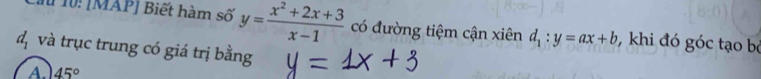 10: [MAP] Biết hàm số $y = \frac{x^2 + 2x + 3}{x - 1}$ có đường tiệm cận xiên $d_1 : y = ax + b$, khi đó góc tạo
$d_1$ và trục trung có giá trị bằng
y = 1x + 3
A. 45°